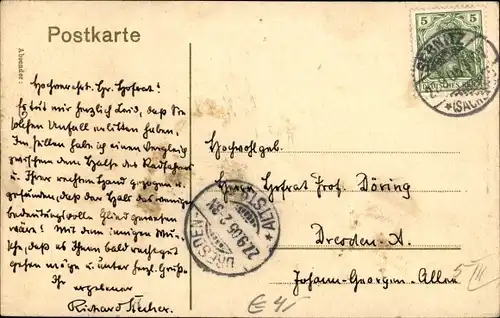 Postkarte
Absender:
Hochverehrt. Hr. Hofrat!
Es tut mir herzlich Leid, daß Sie
solchen Unfall erlitten haben.
Im stillen habe ich einen Vergleich
zwischen dem Halse des Radfahrers
u. Ihrer rechten Hand gezogen u.
gefunden, daß der Hals das weniger
bedeutungsvolle Glied gewesen
wäre! Mit dem innigen Wun-
sche, daß es Ihnen bald recht gut
gehen möge u. unter herzl. Grüße
Ihr
ergebener
Richard
5 5
SEBNITZ
*(SACHS.
DRESDEN-
27.9.06. 2-3N
* ALTST.
Hochwohlgeb.
Herrn Hofrat Prof. Döring
Dresden A.
Johann-Georgen-Allee
5 III
€ 4,-